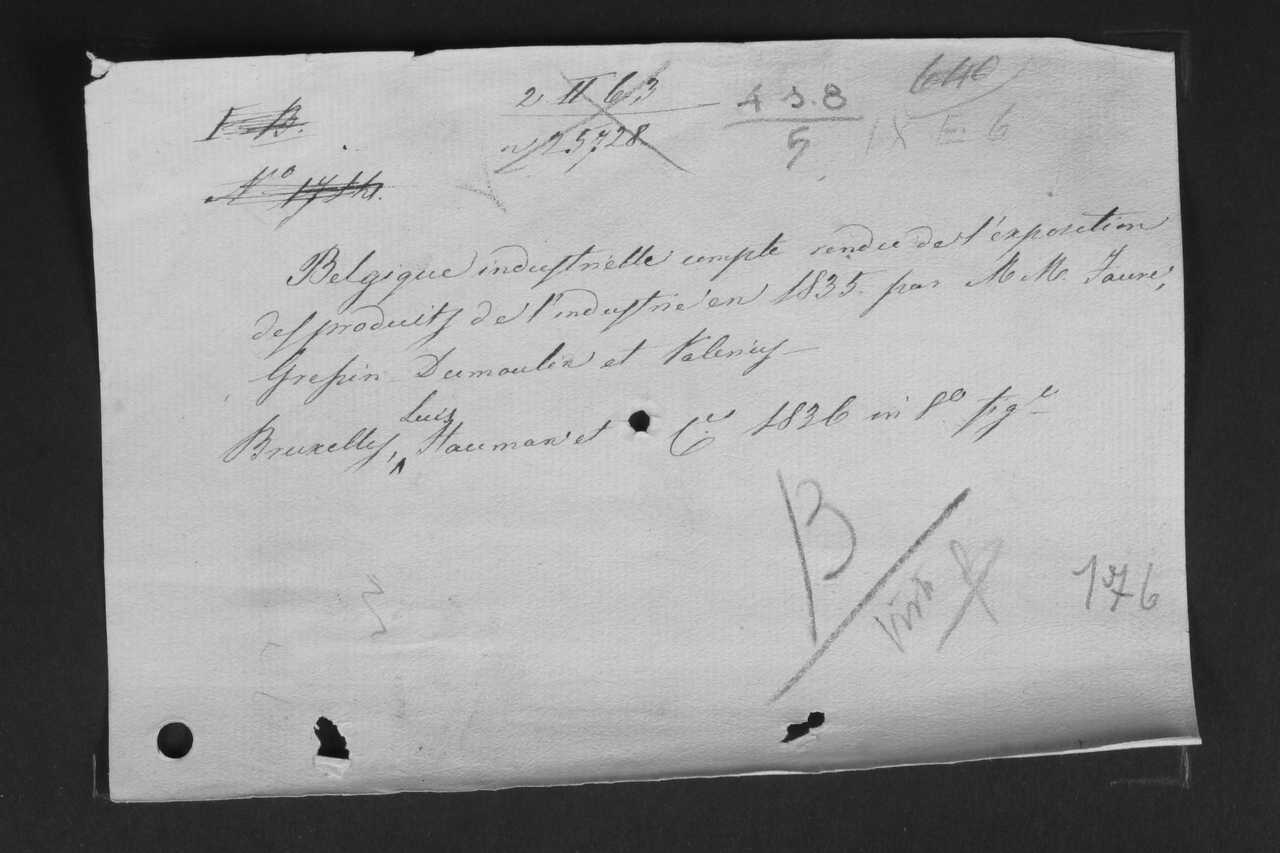 2 II 63
25728
4 S. 8
5
646
N.º
Belgique industrielle compte rendu de l'exposition
des produits de l'industrie en 1835. par M M. Faure,
Grespin Dumoulin et Valerius
Louis
Bruxelles, Hauman et Cie 1836 in 8º fig.
B
176